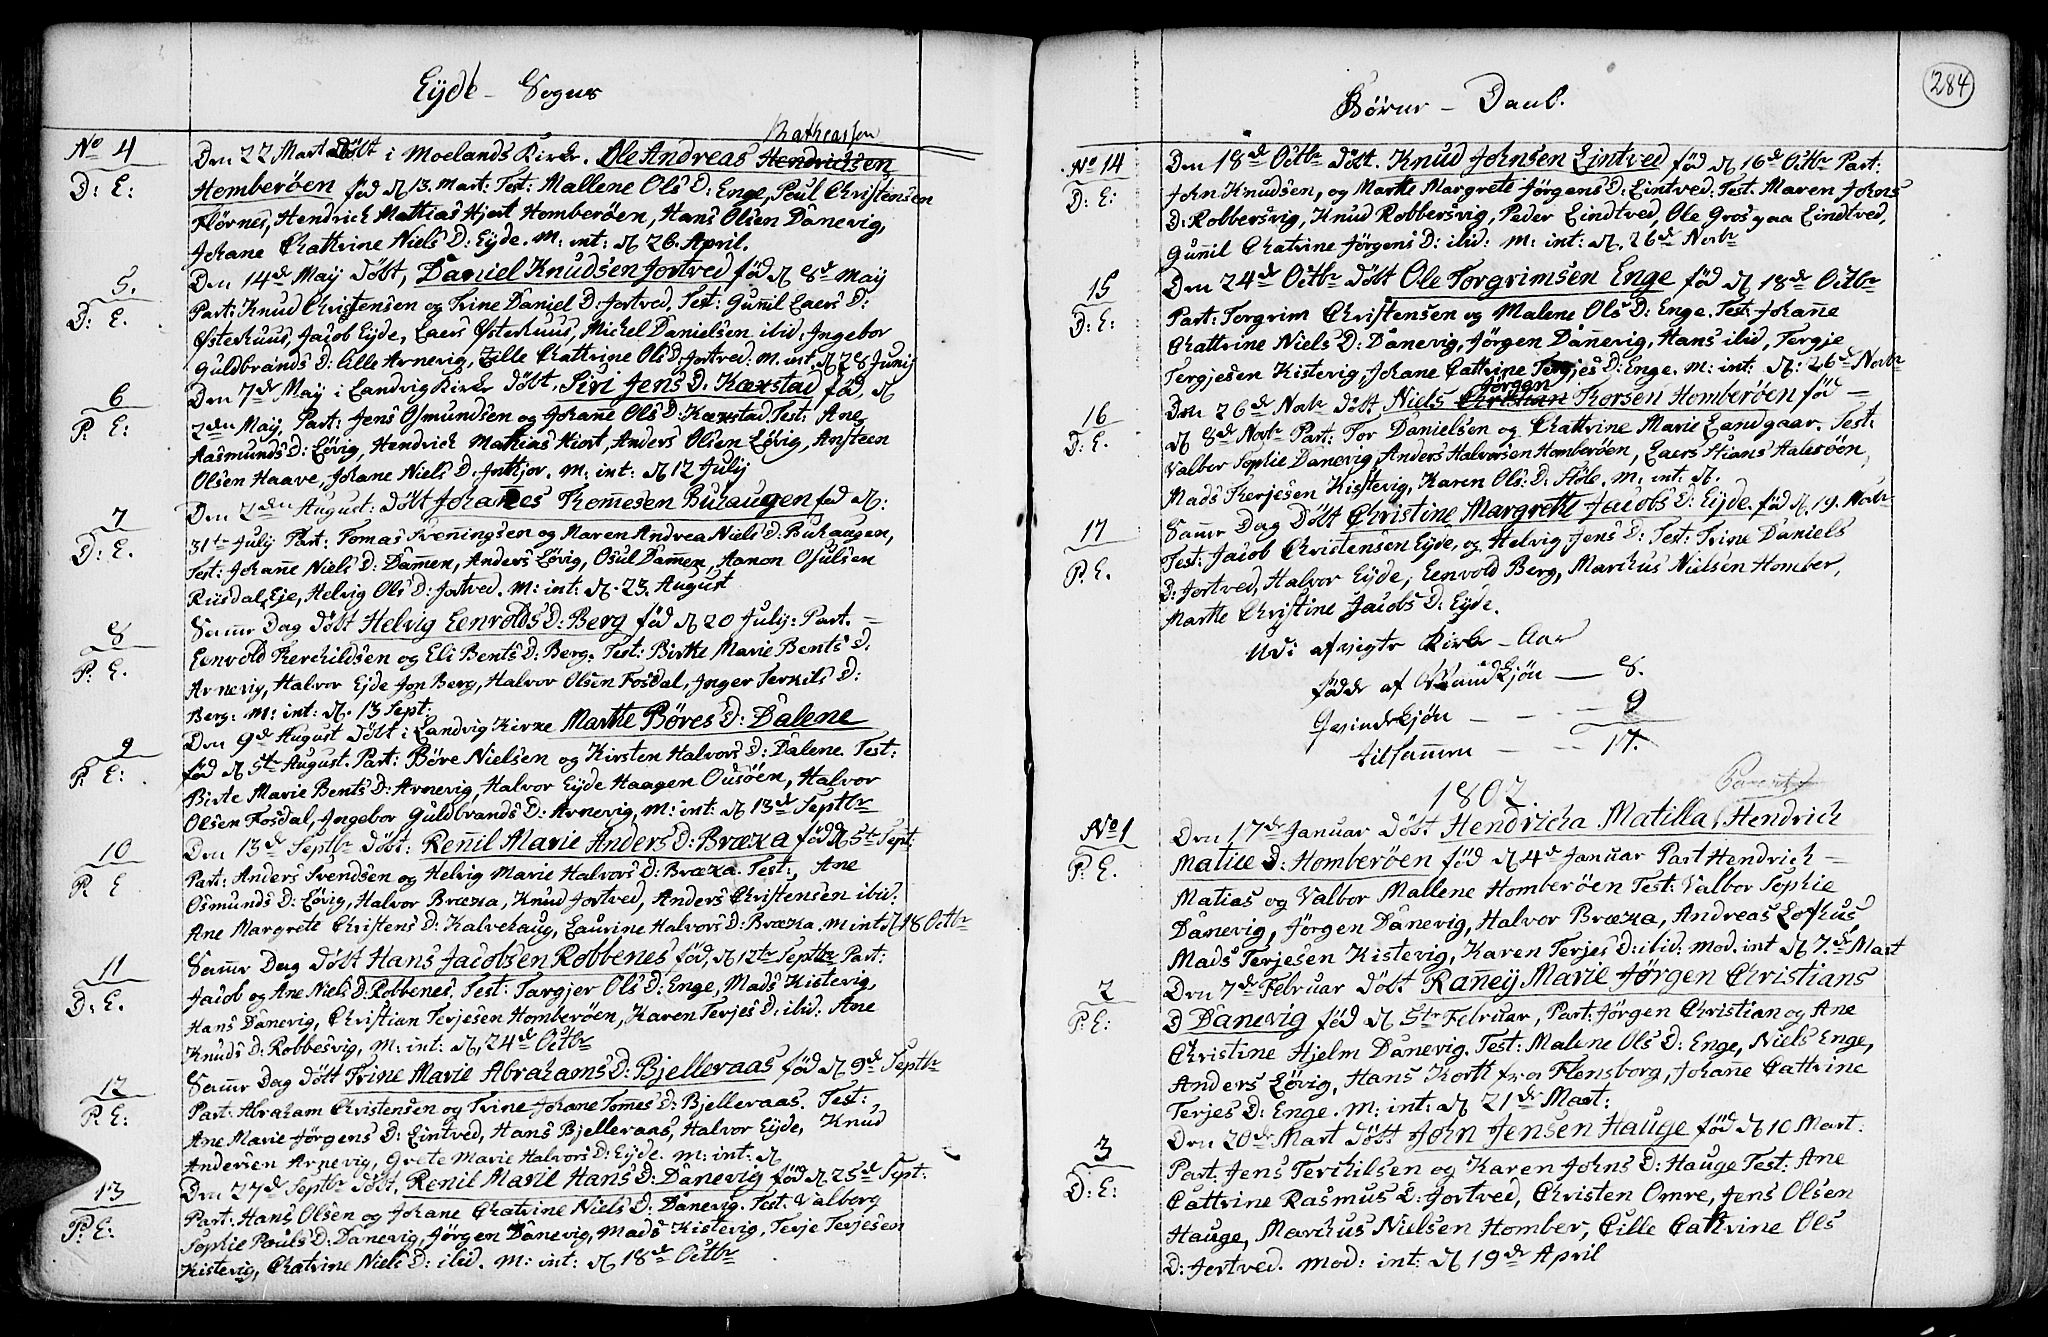 Eyde - Sogns
Matheassen
No 4
D: E:
Den 22 Mart døbt i Moelands Kirke. Ole Andreas Hendrichsen
Homberöen fød d 13. Mart: Test: Mallene Ols D: Enge, Poul Christensen
Flörnes, Hendrich Mathias Hjort Homberöen, Hans Olsen Dånevig,
Johane Chattrine Niels D: Eyde. M: int: d 26. April.
5.
D: E.
Den 14de May døbt, Daniel Knudsen Jortved fød d 8de May
Part: Knud Christensen og Trine Daniel D: Jortved. Test: Guñil Laers D:
Østerhuus, Jacob Eyde, Laers Østerhuus, Michel Danielsen ibid: Ingebor
Guldbrands D: lille Arnevig, Zille Chattrine Ols D: Jortved. M. int. d 28 Junij
6
P: E:
Den 7de May i Landvig Kirke døbt, Siri Jens D. Kæxstad fød, d
2den May, Part: Jens Osmundsen og Johañe Ols D: Kæxstad. Test: Ane
Aasmunds D: Lövig, Hendrich Mathias Hiort, Anders Olsen Lövig, Ansteen
Olsen Haave, Johane Niels D: Inthjor. M: int: d 12 July
7
D: E.
Den 2den August: døbt Johanes Thomesen Buhaugen fød d:
31te July Part: Tomas Sveningsen og Maren Andrea Niels D: Buhaugen,
Test: Johañe Niels D: Dam̃en, Anders Lövig, Osul Dam̃en, Aanon Osulsen
Riisdal, Eje, Helvig Ols D: Jortved. M: int: d. 23. August
8
P: E.
Sam̃e Dag døbt Helvig Eenvolds D: Berg fød d 20 July: Part. =
Eenvold Therchildsen og Eli Bents D: Berg. Test: Birthe Marie Bents D:
Arnevig, Halvor Eyde Jon Berg, Halvor Olsen Fosdal, Inger Terkils D:
Berg: M: int: d. 13 Sept:
9
P: E:
Den 9de August døbt i Landvig Kirke Marthe Böres D: Dalene
fød d 5te August. Part: Böre Nielsen og Kirsten Halvors D: Dalene. Test:
Birte Marie Bents D: Arnevig, Halvor Eyde Haagen Ousöen, Halvor
Olsen Fosdal, Ingebor Guldbrands D: Arnevig, M: int: d 13de Septbr
10
P: E
Den 13de Septbr døbt: Reñil Marie Anders D: Bræxa fødd 5te Sept
Part: Anders Svendsen og Helvig Marie Halvors D: Bræxa. Test:, Ane
Osmunds D: Lövig, Halvor Bræxa, Knud Jortved, Anders Christensen ibid:
Ane Margrete Christens D: Kalvehaug, Laurine Halvors D: Bræxa. M int d 18 Octbr
11
D: E.
Sam̃e Dag døbt Hans Jacobsen Robbenes fød, d 12te Septbr Part:
Jacob og Ane Niels D: Robbenes. Test: Targjer Ols D: Enge, Mads Kistevig,
Hans Dånevig, Christian Terjesen Homberöen, Karen Terjes D: ibid: Ane
Knuds D: Robbesvig, M: int: d, 24de Octbr
12
P: E:
Sam̃e Dag døbt Trine Marie Abrahams D: Bjelleraas fød d 9de Septbr
Part: Abraham Christensen og Trine Johane Tom̃es D: Bjelleraas. Test:
Ane Marie Jörgens D: Lintved, Hans Bjelleraas, Halvor Eyde, Knud
Andersen Arnevig, Grete Marie Halvors D: Eyde. M: int: d
13
P: E:
Den 27de Septbr døbt, Renil Marie Hans D: Dånevig fød d 25de Sept:
Part: Hans Olsen og Johane Chatrine Niels D: Dånevig. Test: Valborg
Sophie Pouls D: Dånevig, Jörgen Dånevig, Mads Kistevig, Terje Terjesen
Kistevig, Chatrine Niels D: ibid. M: int: d 18de Octbr
Börne - Daab.
284
No 14
D: E:
Den 18de Octbr døbt. Knud Johnsen Lintved fød d 16de Octbr Part:
John Knudsen, og Marthe Margrete Jörgens D: Lintved. Test: Maren Johns
D: Robbersvig, Knud Robbersvig, Peder Lindtved, Ole Grosgaa Lindtved,
Guñil Chatrine Jörgens D: ibid: M: int: d, 26de Novbr
15
D: E:
Den 24de Octbr døbt Ole Torgrimsen Enge fød d 18de Octbr
Part: Torgrim Christensen og Malene Ols D: Enge. Test: Johañe
Chattrine Niels D: Dånevig, Jörgen Dåñevig, Hans ibid, Tergje
Tergjesen Kistevig, Johane Cattrine Terjes D: Enge. M: int: d: 26de Novbr
Jörgen
16
D: E.
Den 26de Novbr døbt Niels Christian Thorsen Homberöen fød =
d 8de Novbr Part: Tor Danielsen og Chattrine Marie Landgaar. Test:
Valbor Sophie Danevig, Anders Halvorsen Homberöen, Laers Stians Halesöen,
Mads Therjesen Kistevig, Karen Ols: D: Støle. M: int: d.
17
P. E.
Sam̃e Dag Døbt Christine Margrethe Jacobs D: Eyde. fød d, 19. Novbr
Test: Jacob Christensen Eyde, og Helvig Jens D: Test: Trine Daniels
D: Jortved, Halvor Eyde, Eenvold Berg, Marchus Nielsen Homber,
Marthe Christine Jacobs D: Eyde.
Udi afvigte Kirke-Aar
fødde af Mandkjøn — 8.
Qvindekjøn - - - 9
tilsam̃en - - - 17.
1802
No 1
P: E.
Den 17de Januar døbt Hendricha Matilla, Hendrich
Matie D: Homberöen fød d 4de Januar Part Hendrich =
Matias og Valbor Mallene Homberöen Test: Valbor Sophie
Dånevig, Jörgen Dånevig, Halvor Bræxa, Andreas Lofhus
Mads Terjesen Kistevig, Karen Terjes D: ibid. Mod. int d 7de Mart
2
P: E:
Den 7de Februar døbt Rañey Marie Jörgen Christians
D Dånevig fød d 5te Februar, Part: Jörgen Christian og Ane
Christine Hjelm Dånevig. Test: Malene Ols D: Enge, Niels Enge,
Anders Lövig, Hans Korth fra Flensborg, Johane Cattrine
Terjes D: Enge. M: int: d 21de Mart:
3
D: E:
Den 20de Mart døbt John Jensen Hauge fød d 10 Mart:
Part: Jens Terchilsen og Karen Johns D: Hauge Test: Ane
Cattrine Rasmus D: Jortved, Christen Omre, Jens Olsen
Hauge, Marchus Nielsen Homber, Cille Cathrine Ols
D: Jortved. Mod: int: d 19de April